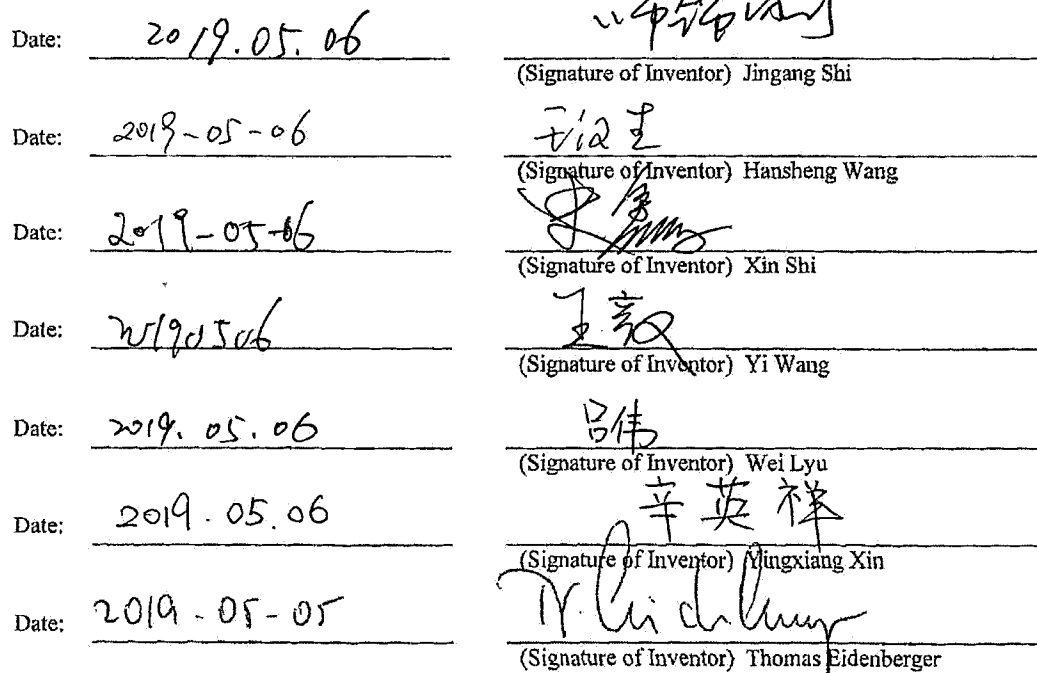 Date: 2019.05.06
(Signature of Inventor) Jingang Shi
Date: 2019-05-06 王汉生
(Signature of Inventor) Hansheng Wang
Date: 2019-05-06 史鑫
(Signature of Inventor) Xin Shi
Date: 20190506 王毅
(Signature of Inventor) Yi Wang
Date: 2019.05.06 吕伟
(Signature of Inventor) Wei Lyu
Date: 2019.05.06 辛英祥
(Signature of Inventor) Yingxiang Xin
Date: 2019-05-05
(Signature of Inventor) Thomas Eidenberger